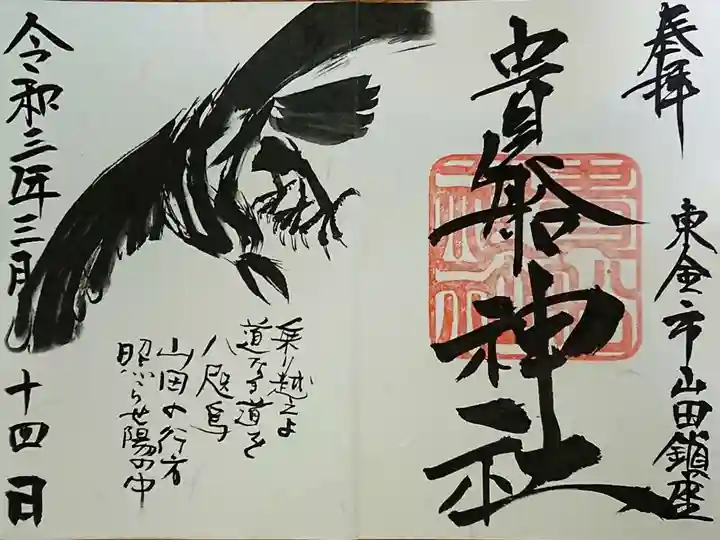 奉拝
東金市山田鎮座
貴船神社
乗り越えよ
道なき道を
八咫烏
山田の行方
照らせ陽の中
令和三年三月
十四日